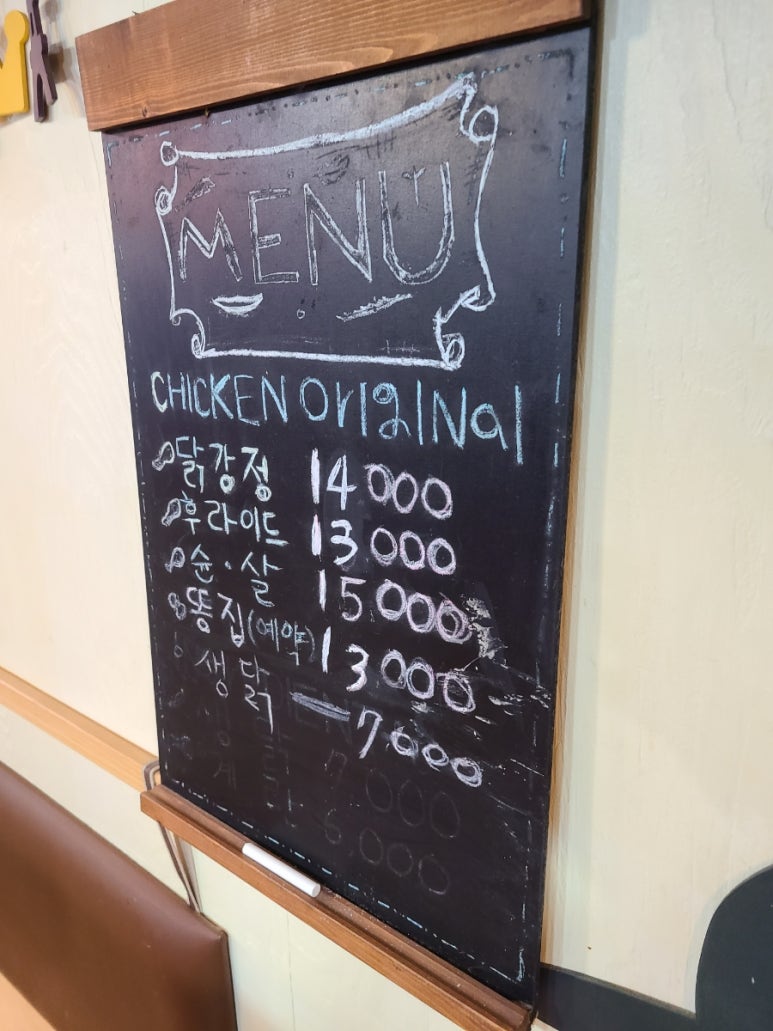 MENU
CHICKEN OriGINal
닭강정 14000
후라이드 13.000
순·살 15000
똥집(예약) 13000
생닭 7.000
7000
6,000